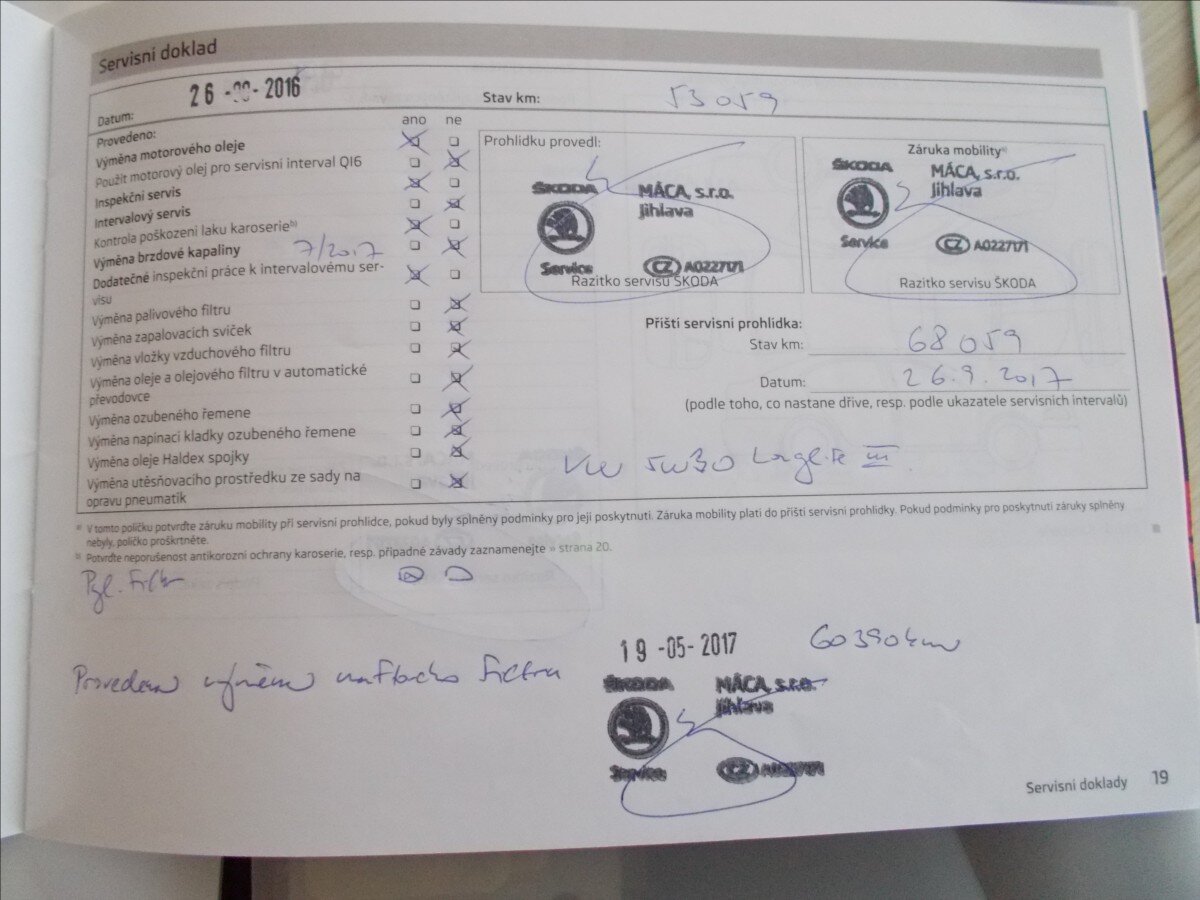 Servisní doklad
Datum: 26 2016 Stav km: 53 059
Provedeno: ano ne
Výměna motorového oleje
Použit motorový olej pro servisní interval QI6
Inspekční servis
Intervalový servis
Kontrola poškození laku karoserieᵇ⁾
Výměna brzdové kapaliny 7/2017
Dodatečné inspekční práce k intervalovému ser-
visu
Výměna palivového filtru
Výměna zapalovacích svíček
Výměna vložky vzduchového filtru
Výměna oleje a olejového filtru v automatické
převodovce
Výměna ozubeného řemene
Výměna napínací kladky ozubeného řemene
Výměna oleje Haldex spojky
Výměna utěsňovacího prostředku ze sady na
opravu pneumatik
Prohlídku provedl:
ŠKODA MÁCA, s.r.o.
Jihlava
Service CZ A0227171
Razítko servisu ŠKODA
Záruka mobilityᵃ⁾
ŠKODA MÁCA, s.r.o.
Jihlava
Service CZ A0227171
Razítko servisu ŠKODA
Příští servisní prohlídka:
Stav km: 68 059
Datum: 26.9.2017
(podle toho, co nastane dříve, resp. podle ukazatele servisních intervalů)
VW 5W30 III
ᵃ⁾ V tomto políčku potvrďte záruku mobility při servisní prohlídce, pokud byly splněný podmínky pro její poskytnutí. Záruka mobility platí do příští servisní prohlídky. Pokud podmínky pro poskytnutí záruky splněny
nebyly, políčko proškrtněte.
ᵇ⁾ Potvrďte neporušenost antikorozní ochrany karoserie, resp. případné závady zaznamenejte » strana 20.
Pyl. Filtr
19 -05- 2017 60390 km
Provedena výměna naftového Filtru
ŠKODA MÁCA, s.r.o.
Jihlava
Service CZ
Servisní doklady 19